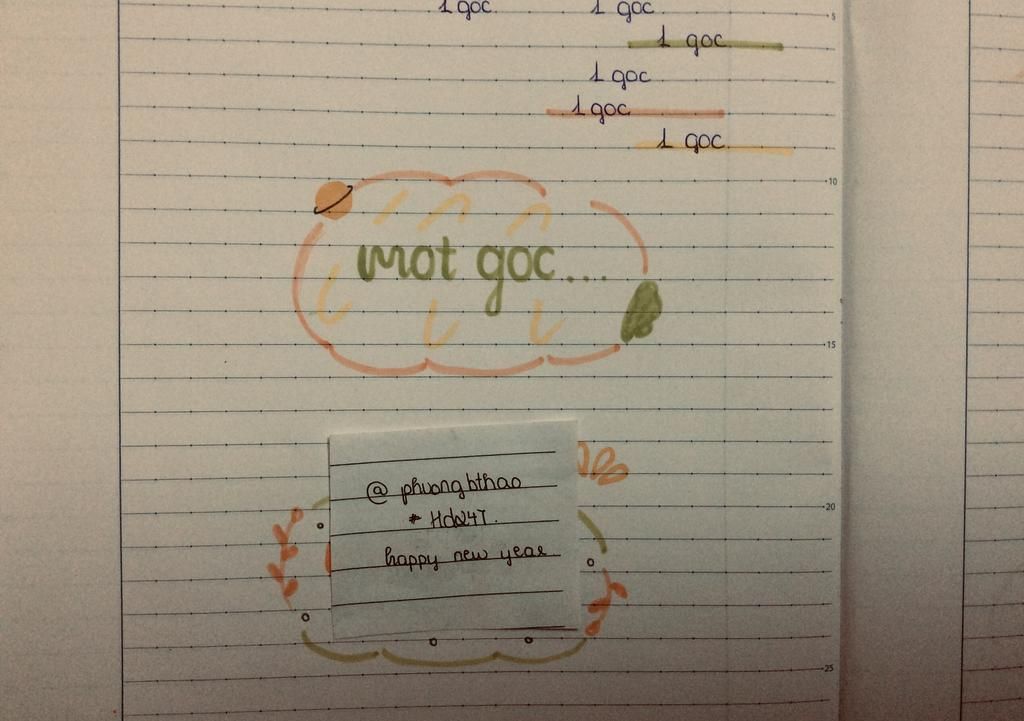 1 goc 1 goc
5
1 goc
1 goc
1 goc
1 goc
10
mot goc...
15
@ phuongbthao
20
# Hd247.
happy new year
25